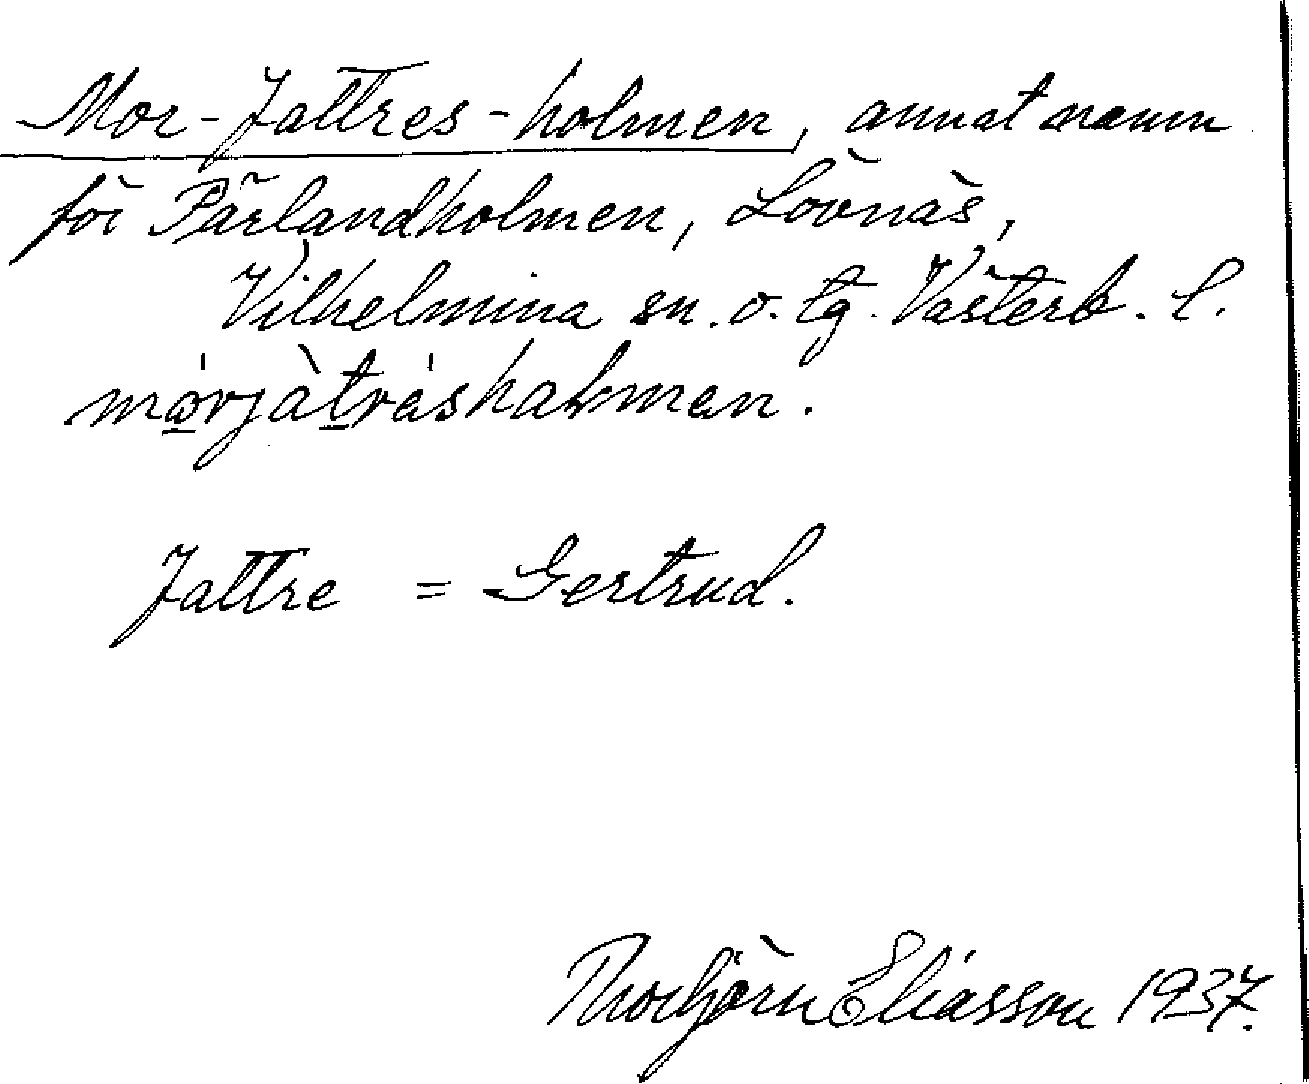 Mor-Jattres-holmen, annat namn
för Pärlandholmen, Lövnäs,
Vilhelmina sn. o. tg. Västerb. l.
mo̲rjàt̲ráshaɫmən.
Jattre = Gertrud.
Thorbjörn Eliasson 1937.